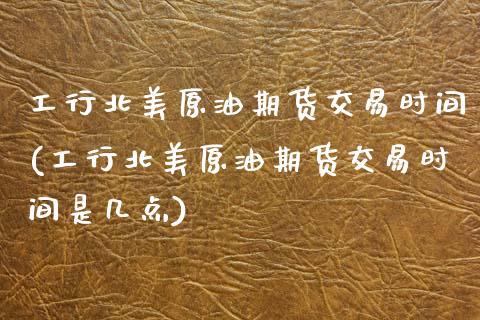 工行北美原油期货交易时间
(工行北美原油期货交易时
间是几点)